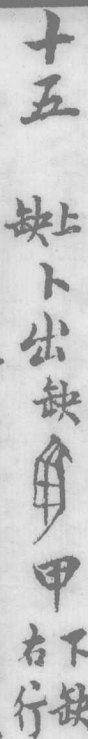 十五 上缺卜出缺甲下缺右行